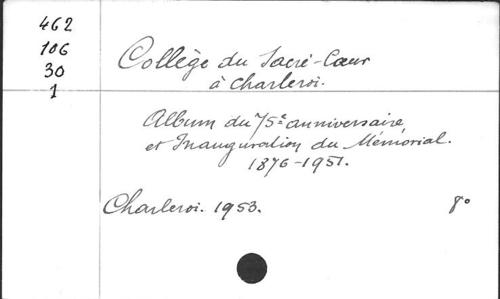 462
106
30
1
Collège du Sacré-Cœur
à Charleroi.
Album du 75e anniversaire
et Inauguration du Mémorial.
1876-1951.
Charleroi. 1953. 8°